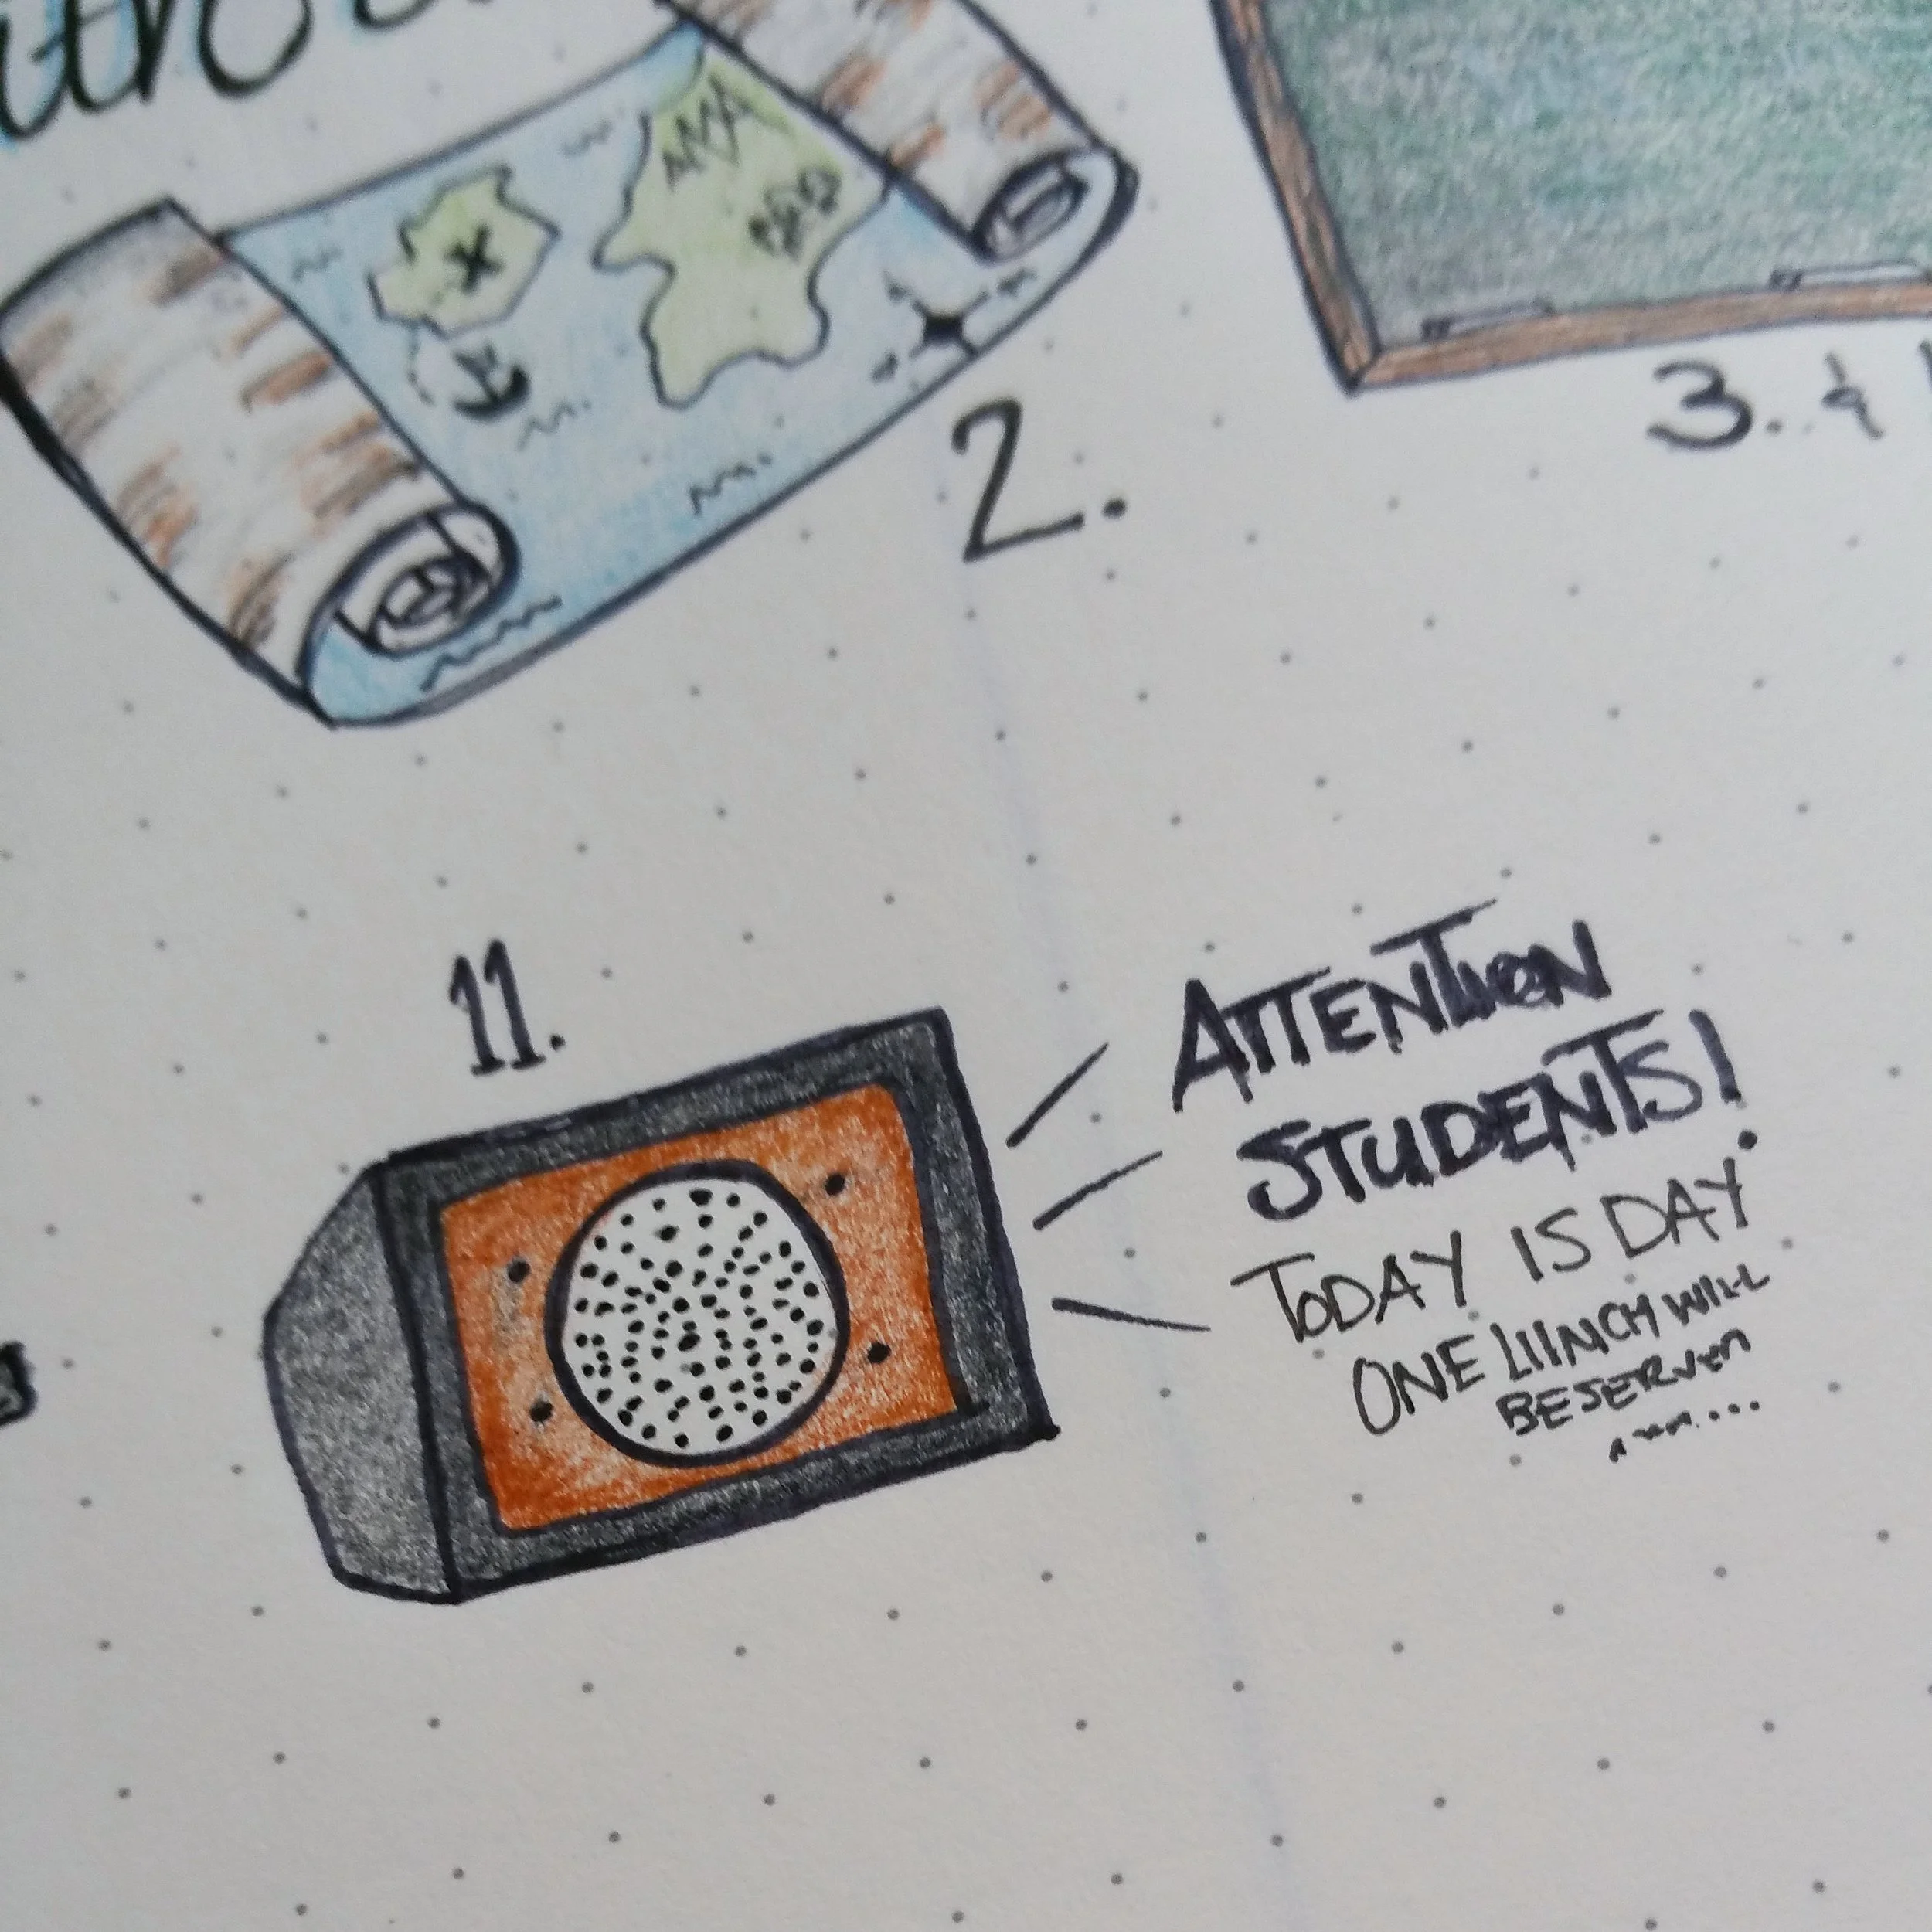 X
2.
3. &
11.
ATTENTION
STUDENTS!
TODAY IS DAY
ONE LUNCH WILL
BE SERVED